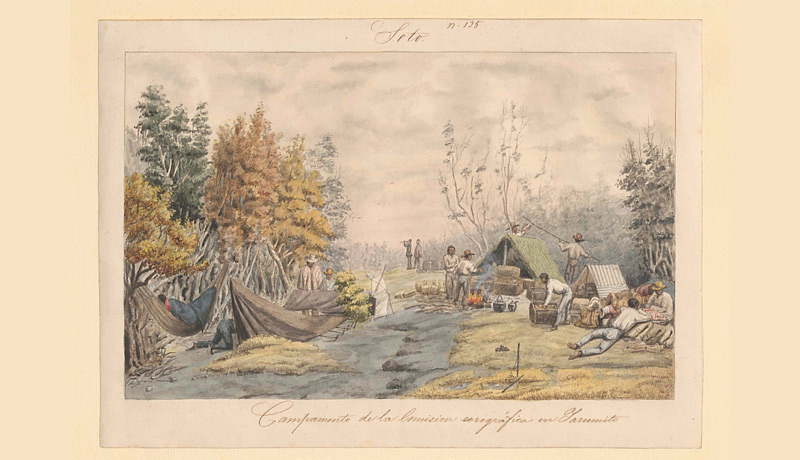 n. 135
Soto.
Campamento de la Comision corográfica en Yarumito